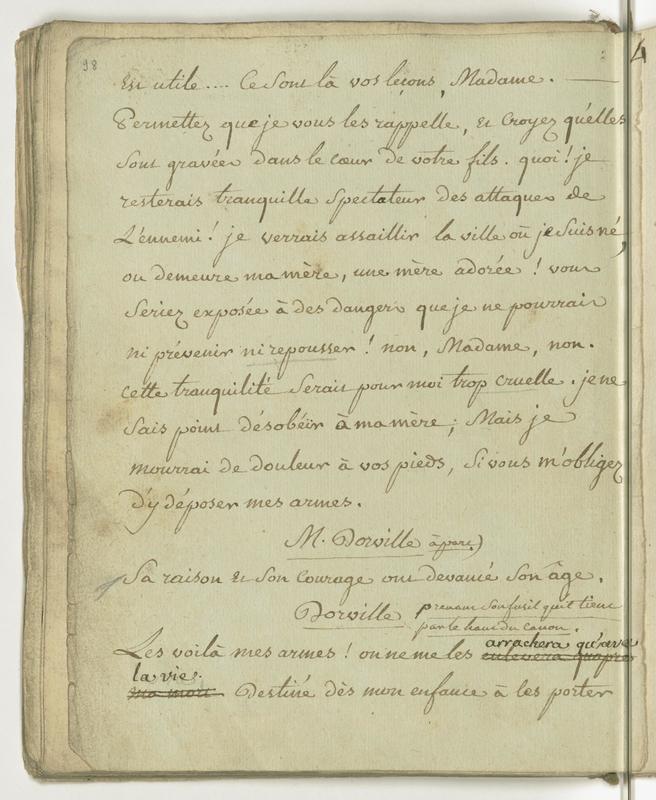 98
Est utile.... Ce sont là vos leçons, Madame. —
Permettez que je vous les rappelle, Et Croyez qu'elles
sont gravées dans le cœur de votre fils. quoi! je
resterais tranquille Spectateur des attaques de
L'ennemi! je verrais assaillir la ville où je suis né,
ou demeure ma mère, une mère adorée! vous
seriez exposée à des dangers que je ne pourrais
ni prévenir ni repousser! non, Madame, non.
cette tranquilité serait pour moi trop cruelle. je ne
sais point désobéir à ma mère; Mais je
mourrai de douleur à vos pieds, si vous m'obligez
d'y déposer mes armes.
M. Dorville à part)
Sa raison Et son Courage ont devancé son âge.
Dorville prenant son fusil qu'il tient
par le haut du canon.
arrachera qu'avec
Les voilà mes armes! on ne me les enlevera qu'après
la vie.
ma mort. Destiné dès mon enfance à les porter